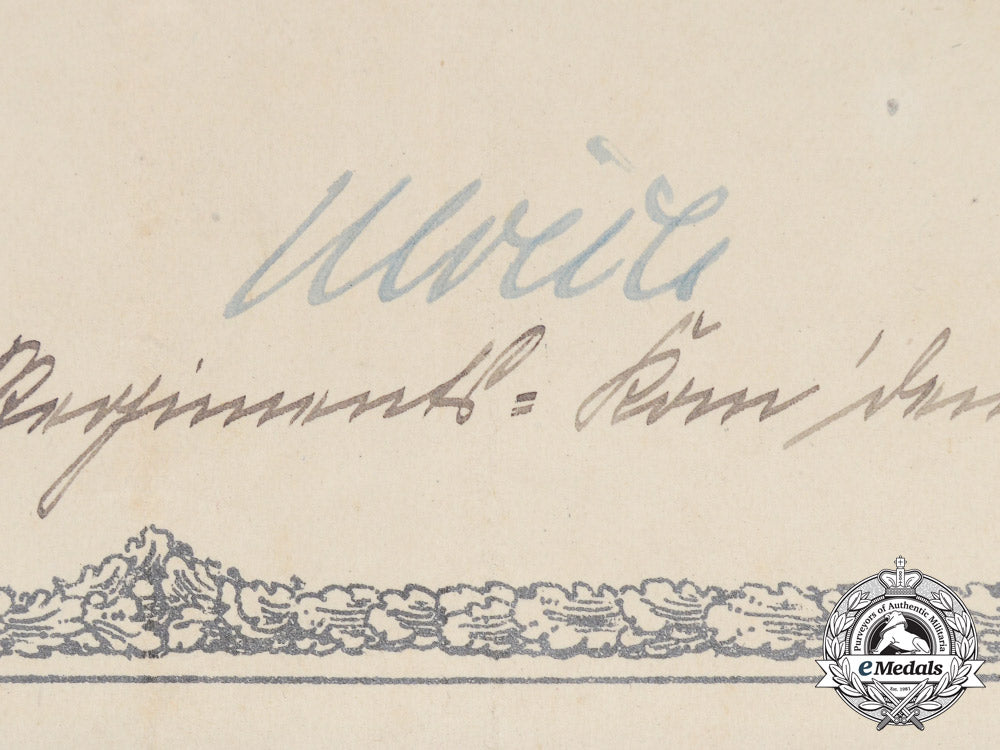 Regiments= Kom'den
Purveyors of Authentic Militaria
eMedals
Est. 1981